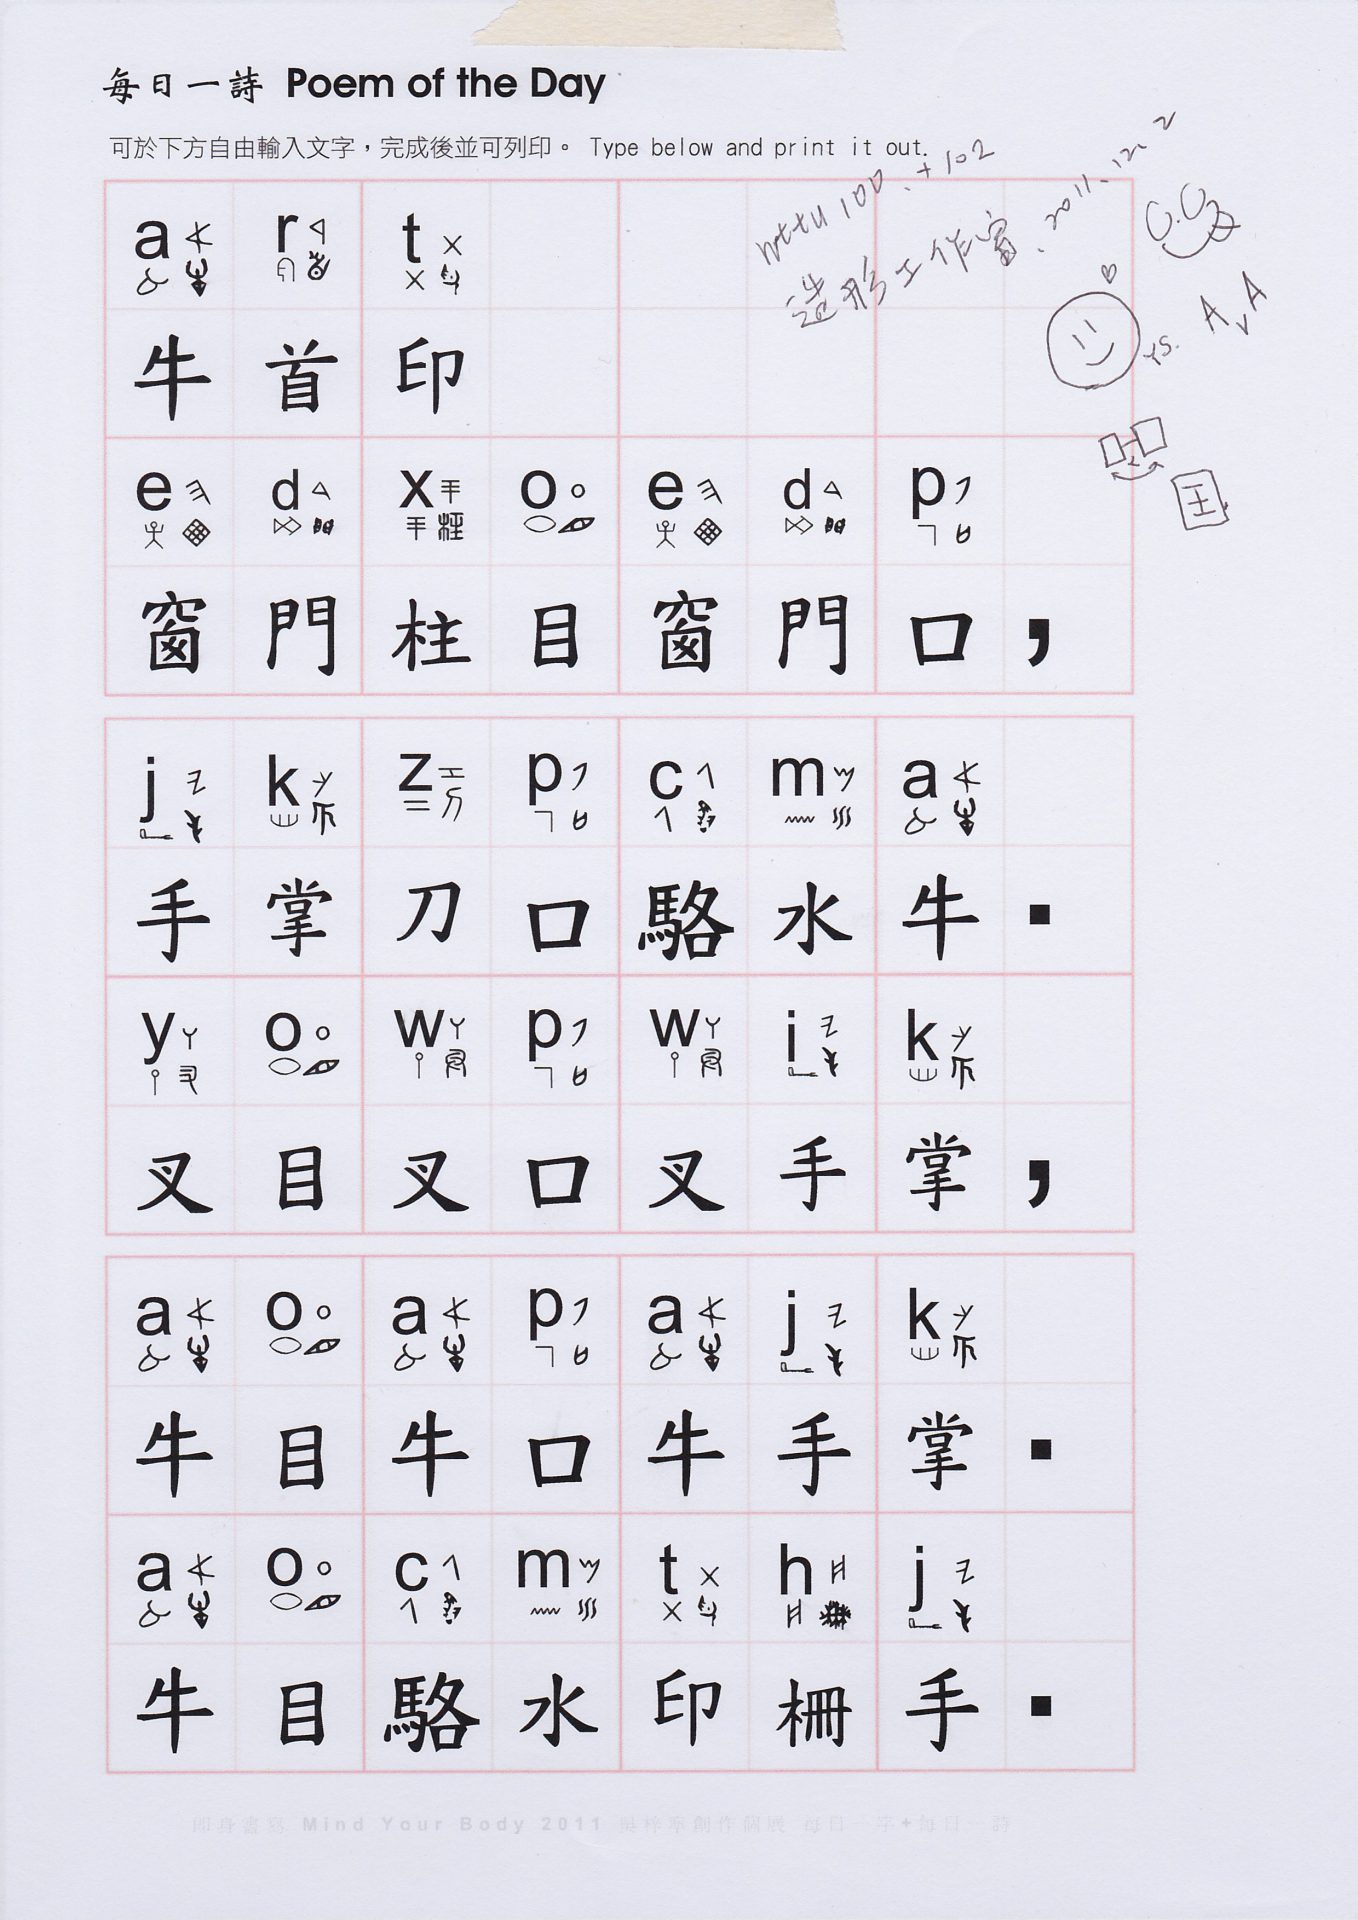 每日一詩 Poem of the Day
可於下方自由輸入文字，完成後並可列印。 Type below and print it out.
nttu 100.+102
造形工作窗、2011.12.2
a r t
牛首印
vs. A A
e d x o e d p
窗門柱目窗門口，
王
j k z p c m a
手掌刀口駱水牛.
y o w p w i k
叉目叉口叉手掌，
a o a p a j k
牛目牛口牛手掌.
a o c m t h j
牛目駱水印柵手.
即身書寫 Mind Your Body 2011 創作個展 每日一字+每日一詩